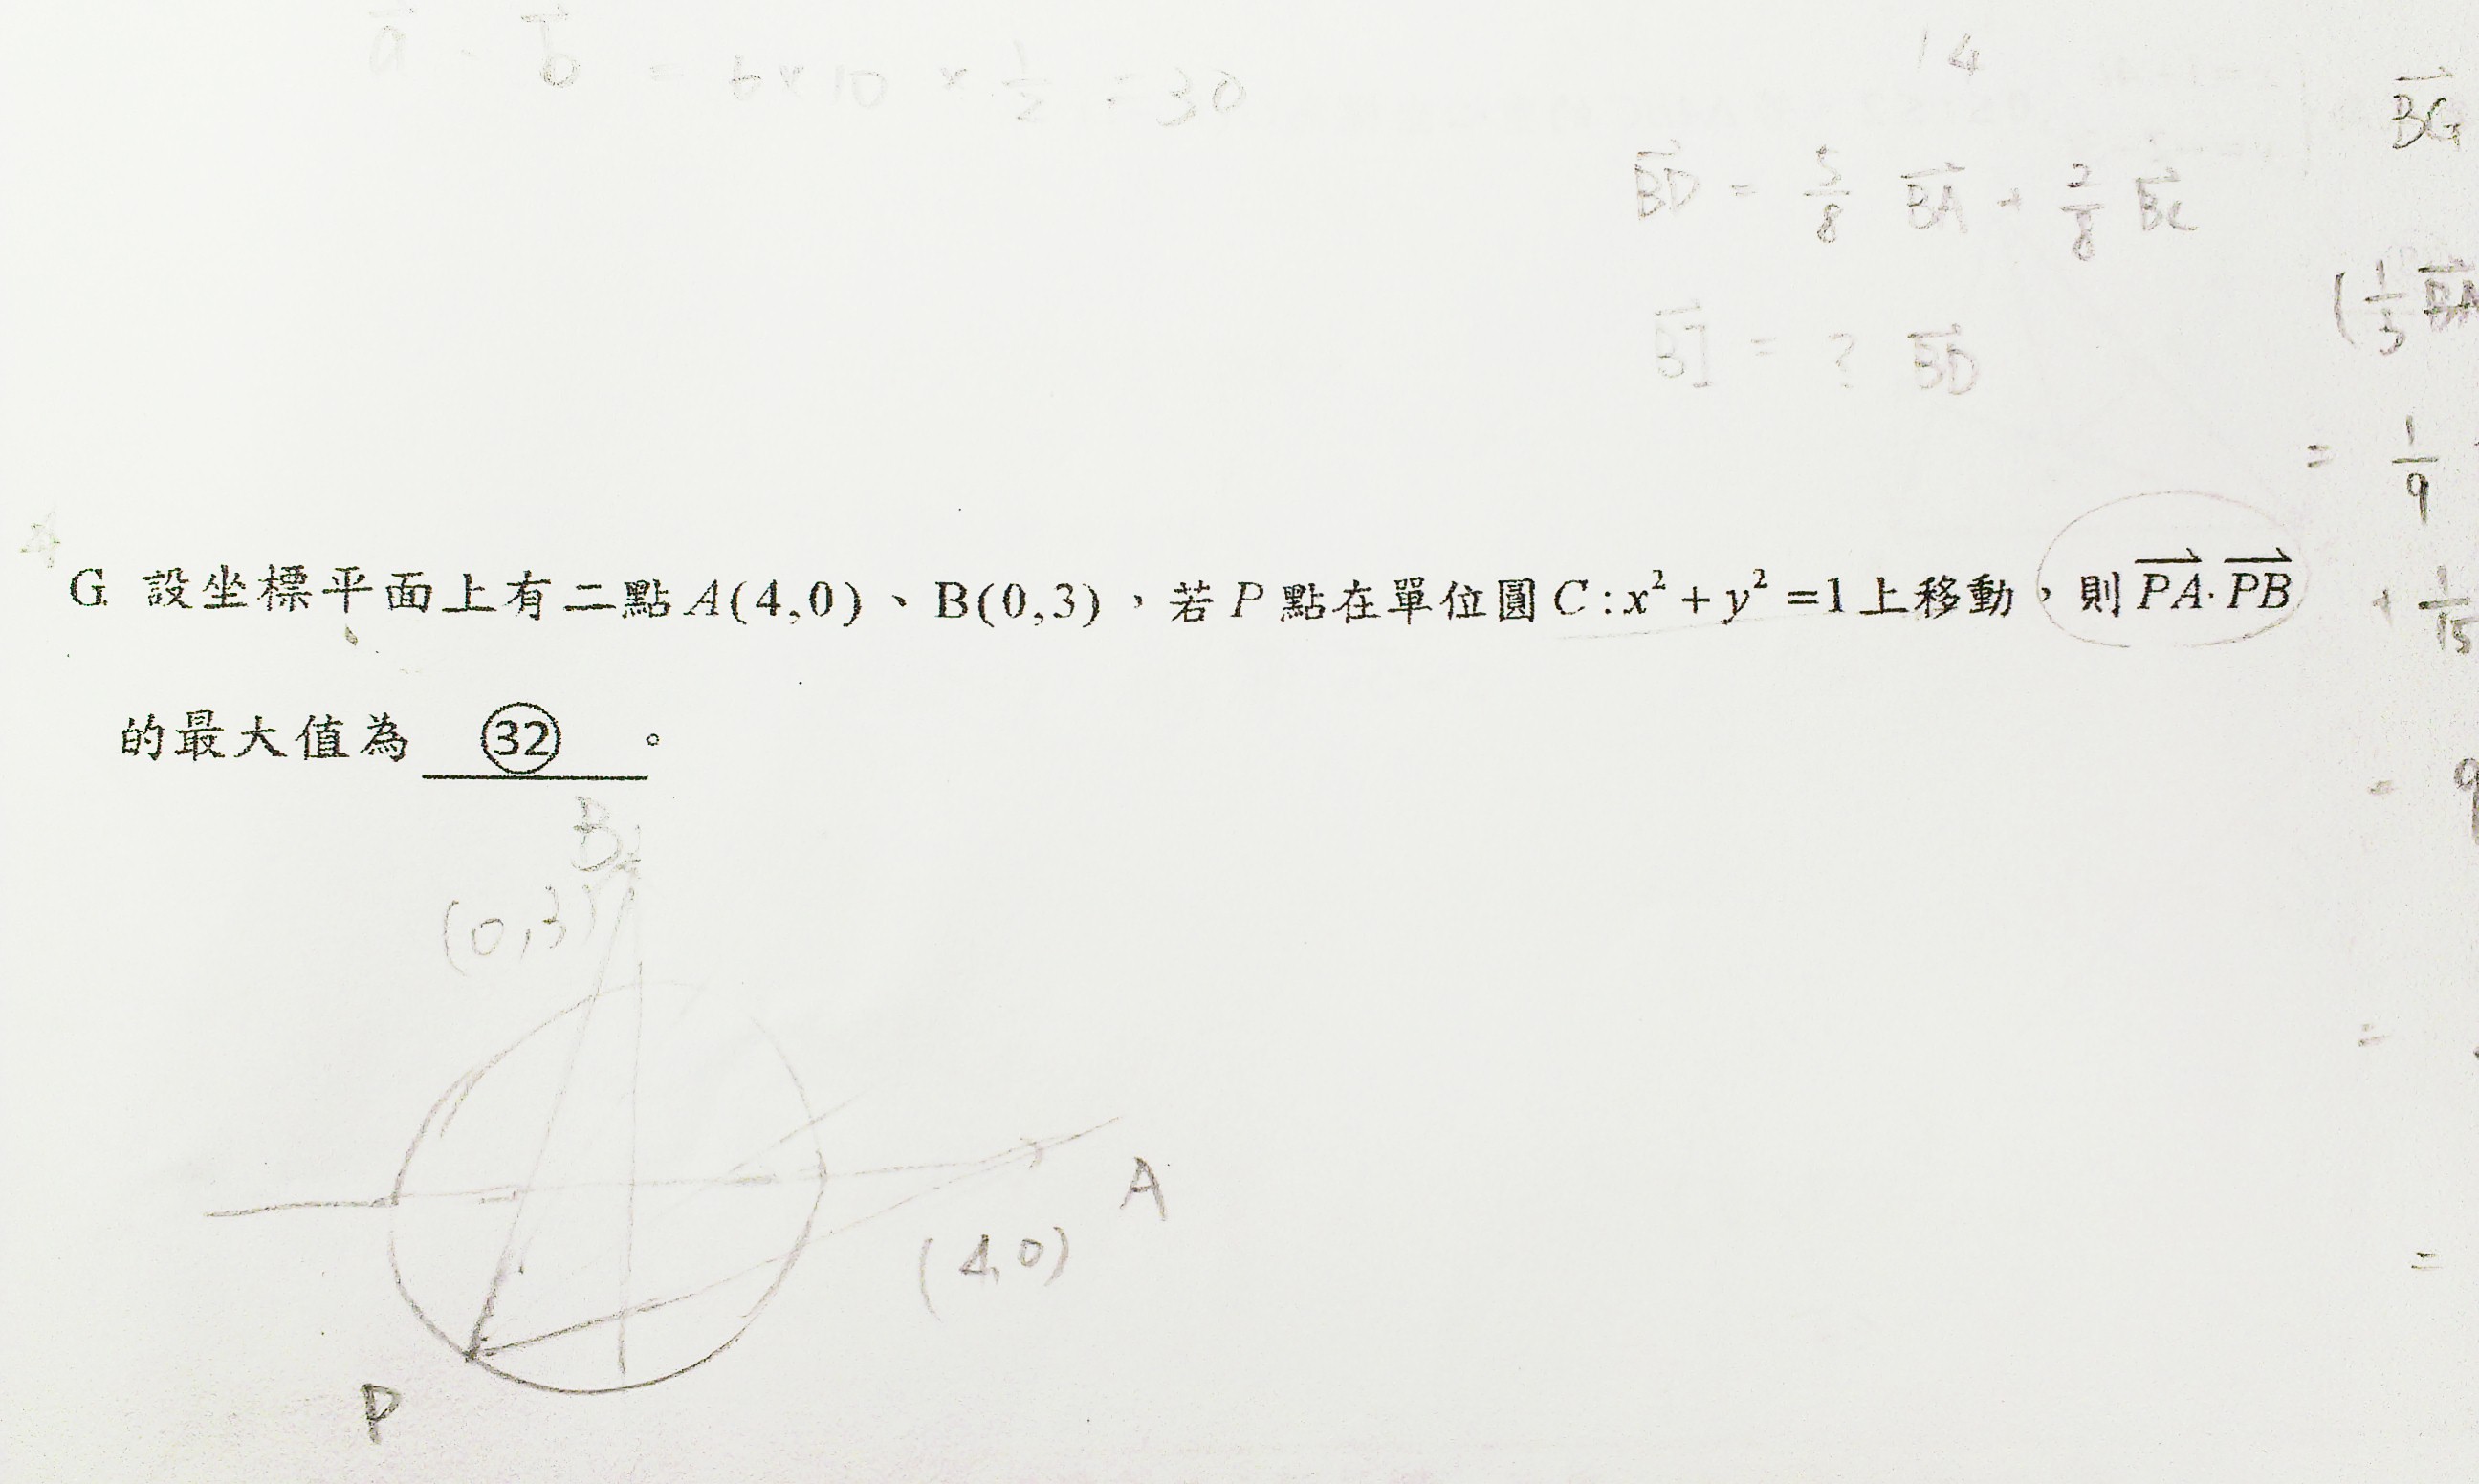 a⃗ · b⃗ = 6×10 × 1/2 = 30
14
BG⃗
BD⃗ = 5/8 BA⃗ + 3/8 BC⃗
(1/3 BA⃗
BI⃗ = ? BD⃗
= 1/9
G. 設坐標平面上有二點A(4,0)、B(0,3),若P點在單位圓C:x²+y²=1上移動,則PA⃗·PB⃗
+ 1/15
的最大值為 ㉜ 。
= 9
B
(0,3)
=
A
(4,0)
=
P